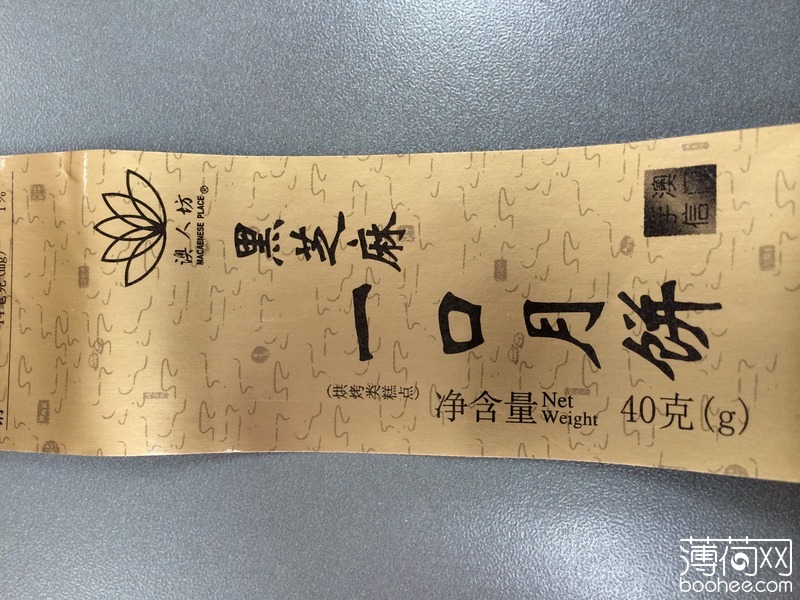 澳人坊®
MACAENESE PLACE
黑芝麻
一口月饼
(烘烤类糕点)
净含量 Net Weight 40克(g)
澳門
手信
1%
薄荷网
boohee.com